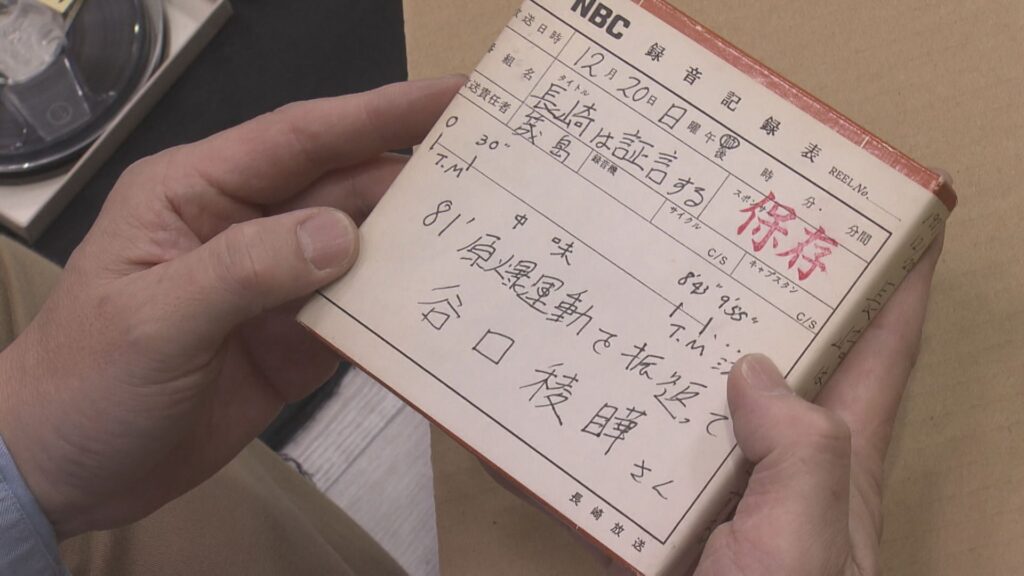 NBC 録音記録表 REEL No.
放送日時 12月20日 日曜 午前後 時 分 分間
番組名 タイトル 長崎は証言する
スポンサー 保存
放送責任者 録音機 サイクル C/S キャプスタン C/S
0 30" 8'43" 9'55"
T.M T.M
中味
81'原爆運動を振り返って
谷口稜曄さん
長崎放送